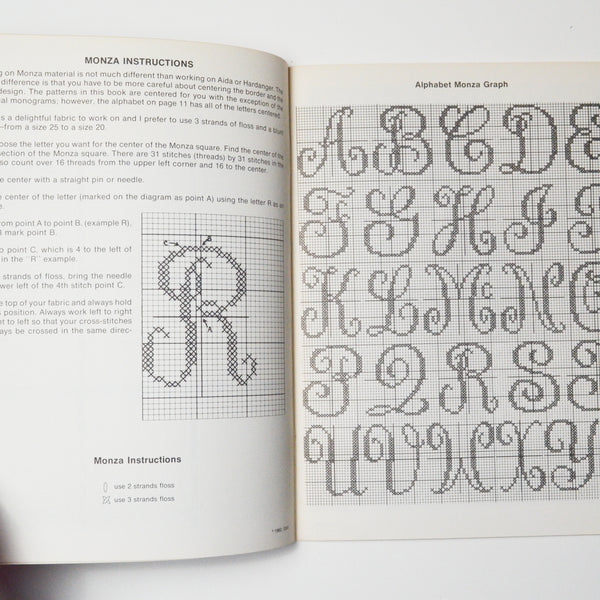 MONZA INSTRUCTIONS
g on Monza material is not much different than working on Aida or Hardanger. The
difference is that you have to be more careful about centering the border and the
design. The patterns in this book are centered for you with the exception of the
al monograms; however, the alphabet on page 11 has all of the letters centered.
s a delightful fabric to work on and I prefer to use 3 strands of floss and a blunt
—from a size 25 to a size 20.
oose the letter you want for the center of the Monza square. Find the center of the
section of the Monza square. There are 31 stitches (threads) by 31 stitches in the
so count over 16 threads from the upper left corner and 16 to the center.
e center with a straight pin or needle.
e center of the letter (marked on the diagram as point A) using the letter R as an
e.
rom point A to point B. (example R),
mark point B.
o point C, which is 4 to the left of
in the "R" example.
strands of floss, bring the needle
wer left of the 4th stitch point C.
e top of your fabric and always hold
position. Always work left to right
t to left so that your cross-stitches
ays be crossed in the same direc-
C
B
A
Monza Instructions
use 2 strands floss
use 3 strands floss
Alphabet Monza Graph
A B C D E
F G H I J
K L M N O
P Q R S
U V W X Y